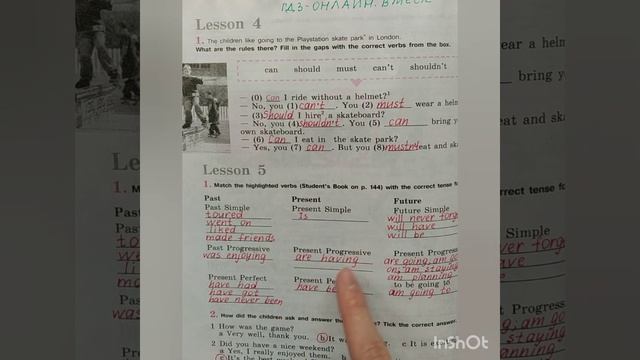 ГДЗ-ОНЛАЙН. ВМЕСТ
Lesson 4
1. The children like going to the Playstation skate park* in London.
What are the rules there? Fill in the gaps with the correct verbs from the box.
can should must can't shouldn't
— (0) Can I ride without a helmet?¹
— No, you (1) can't. You (2) must wear a helm
— (3) Should I hire² a skateboard?
— No, you (4) shouldn't. You (5) can bring y
own skateboard.
— (6) Can I eat in the skate park?
— Yes, you (7) can. But you (8) mustn't eat and ska
Lesson 5
1. Match the highlighted verbs (Student's Book on p. 144) with the correct tense fo
Past Present Future
Past Simple Present Simple Future Simple
toured is will never forg
went on will have
liked will be
made friends
Past Progressive Present Progressive Present Progre
was enjoying are having are going, am go
on, am staying
am planning
Present Perfect Present Pe to be going to
have had have be am going to
have got
have never been
2. How did the children ask and answer the Tick the correct answer.
1 How was the game?
a Very well, thank you. b It w
2 Did you have a nice weekend?
a Yes, I really enjoyed them. c It is e
InShOt